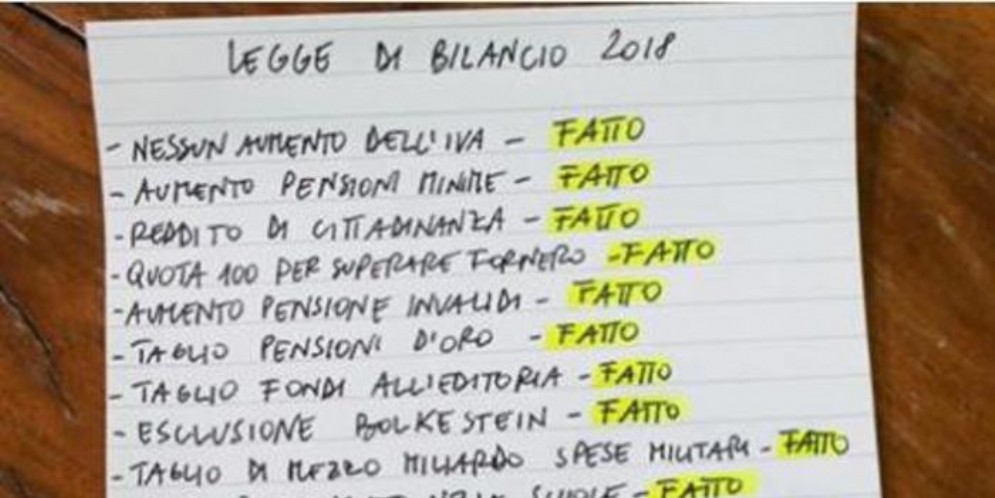 LEGGE DI BILANCIO 2018
- NESSUN AUMENTO DELL'IVA - FATTO
- AUMENTO PENSIONI MINIME - FATTO
- REDDITO DI CITTADINANZA - FATTO
- QUOTA 100 PER SUPERARE FORNERO - FATTO
- AUMENTO PENSIONE INVALIDI - FATTO
- TAGLIO PENSIONI D'ORO - FATTO
- TAGLIO FONDI ALL'EDITORIA - FATTO
- ESCLUSIONE BOLKESTEIN - FATTO
- TAGLIO DI MEZZO MILIARDO SPESE MILITARI - FATTO
SCUOLE - FATTO